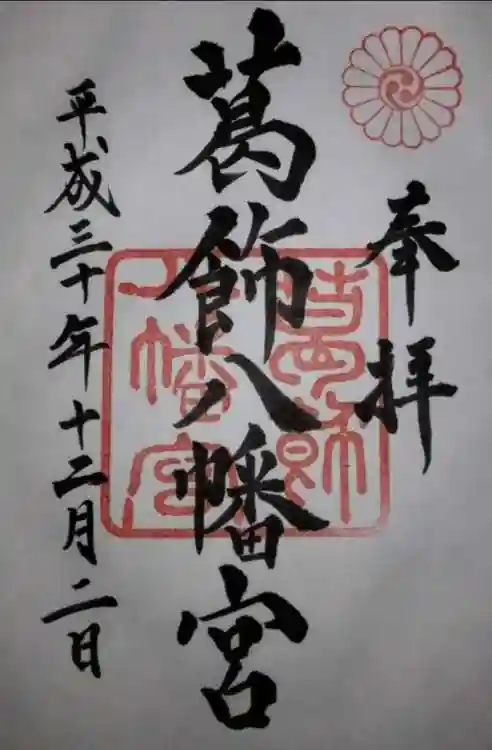 奉拝
葛飾八幡宮
葛飾
八幡宮
平成三十年十二月二日